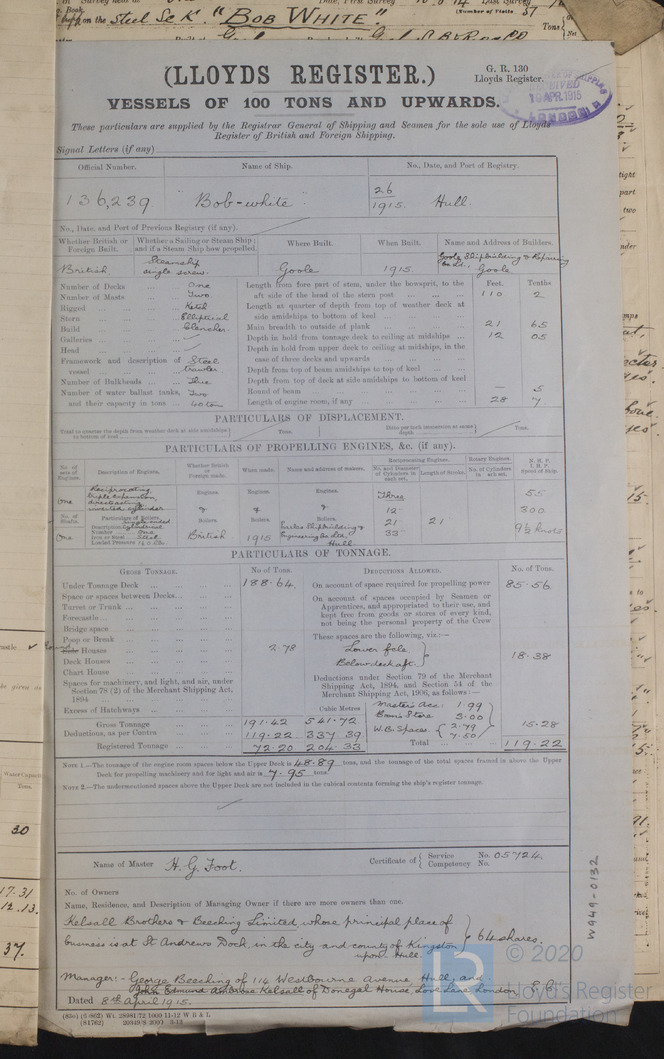 Steel Sc K. "BOB WHITE"
(LLOYDS REGISTER.)
G. R. 130
Lloyds Register.
RECEIVED
10 APR. 1915
VESSELS OF 100 TONS AND UPWARDS.
These particulars are supplied by the Registrar General of Shipping and Seamen for the sole use of Lloyds
Register of British and Foreign Shipping.
Signal Letters (if any)
Official Number. Name of Ship. No., Date, and Port of Registry.
136,239 "Bob-white" 26/1915. Hull.
No., Date, and Port of Previous Registry (if any).
Whether British or Foreign Built. Whether a Sailing or Steam Ship; and if a Steam Ship how propelled. Where Built. When Built. Name and Address of Builders.
British Steamship single screw. Goole 1915 Goole Shipbuilding & Repairing Co. Ld. Goole
Feet. Tenths
Number of Decks One Length from fore part of stem, under the bowsprit, to the
Number of Masts Two aft side of the head of the stern post 110 2
Rigged Ketch Length at quarter of depth from top of weather deck at
Stern Elliptical side amidships to bottom of keel
Build Clencher. Main breadth to outside of plank 21 65
Galleries Depth in hold from tonnage deck to ceiling at midships 12 05
Head Depth in hold from upper deck to ceiling at midships, in the
Framework and description of vessel Steel trawler case of three decks and upwards
Depth from top of beam amidships to top of keel
Number of Bulkheads Three Depth from top of deck at side amidships to bottom of keel
Number of water ballast tanks, Two Round of beam — 5
and their capacity in tons 40 tons Length of engine room, if any 28 7
PARTICULARS OF DISPLACEMENT.
Total to quarter the depth from weather deck at side amidships to bottom of keel Tons. Ditto per inch immersion at same depth Tons.
PARTICULARS OF PROPELLING ENGINES, &c. (if any).
No. of sets of Engines. Description of Engines. Whether British or Foreign made. When made. Name and address of makers. Reciprocating Engines. No. and Diameter of Cylinders in each set. Length of Stroke. Rotary Engines. No. of Cylinders in each set. N.H.P. I.H.P. Speed of Ship.
One Reciprocating triple expansion, direct acting inverted cylinder Engines. Engines. Engines. Three 55
& & & 12" 300
No. of Shafts. Particulars of Boilers. Boilers. Boilers. Boilers. 21" 21 9½ knots
Description Single ended Cylindrical
Number One
One Iron or Steel Steel British 1915 Earles Shipbuilding & Engineering Co Ltd, Hull. 33"
Loaded Pressure
PARTICULARS OF TONNAGE.
GROSS TONNAGE. No. of Tons. DEDUCTIONS ALLOWED. No. of Tons.
Under Tonnage Deck 188.64 On account of space required for propelling power 85.56
Space or spaces between Decks On account of spaces occupied by Seamen or
Turret or Trunk Apprentices, and appropriated to their use, and
Forecastle kept free from goods or stores of every kind,
Bridge space not being the personal property of the Crew
Poop or Break These spaces are the following, viz.:—
Side Houses 2.78 Lower fcle
Deck Houses Below deck aft. 18.38
Chart House
Spaces for machinery, and light, and air, under Section 78 (2) of the Merchant Shipping Act, 1894 Deductions under Section 79 of the Merchant Shipping Act, 1894, and Section 54 of the Merchant Shipping Act, 1906, as follows:—
Excess of Hatchways Cubic Metres Master's Acc: 1.99
Gross Tonnage 191.42 541.72 Bosn's Store 3.00 15.28
Deductions, as per Contra 119.22 337 39 W.B. Spaces. 2.79 7.50
Registered Tonnage 72.20 204 33 Total 119.22
NOTE 1.—The tonnage of the engine room spaces below the Upper Deck is 48.89 tons, and the tonnage of the total spaces framed in above the Upper
Deck for propelling machinery and for light and air is 7.95 tons.
NOTE 2.—The undermentioned spaces above the Upper Deck are not included in the cubical contents forming the ship's register tonnage.
Name of Master H. G. Foot. Certificate of Service Competency No. 05724. No.
No. of Owners
Name, Residence, and Description of Managing Owner if there are more owners than one.
Kelsall Brothers & Beeching Limited, whose principal place of
business is at St Andrews Dock, in the city and county of Kingston 64 shares.
upon Hull.
Manager:- George Beeching of 114 Westbourne Avenue Hull, and
John Edmund Ambrose Kelsall of Donegal House, Love Lane London E.C.
Dated 8th April 1915.
W949-0132
© 2020
LR
Lloyd's Register
Foundation